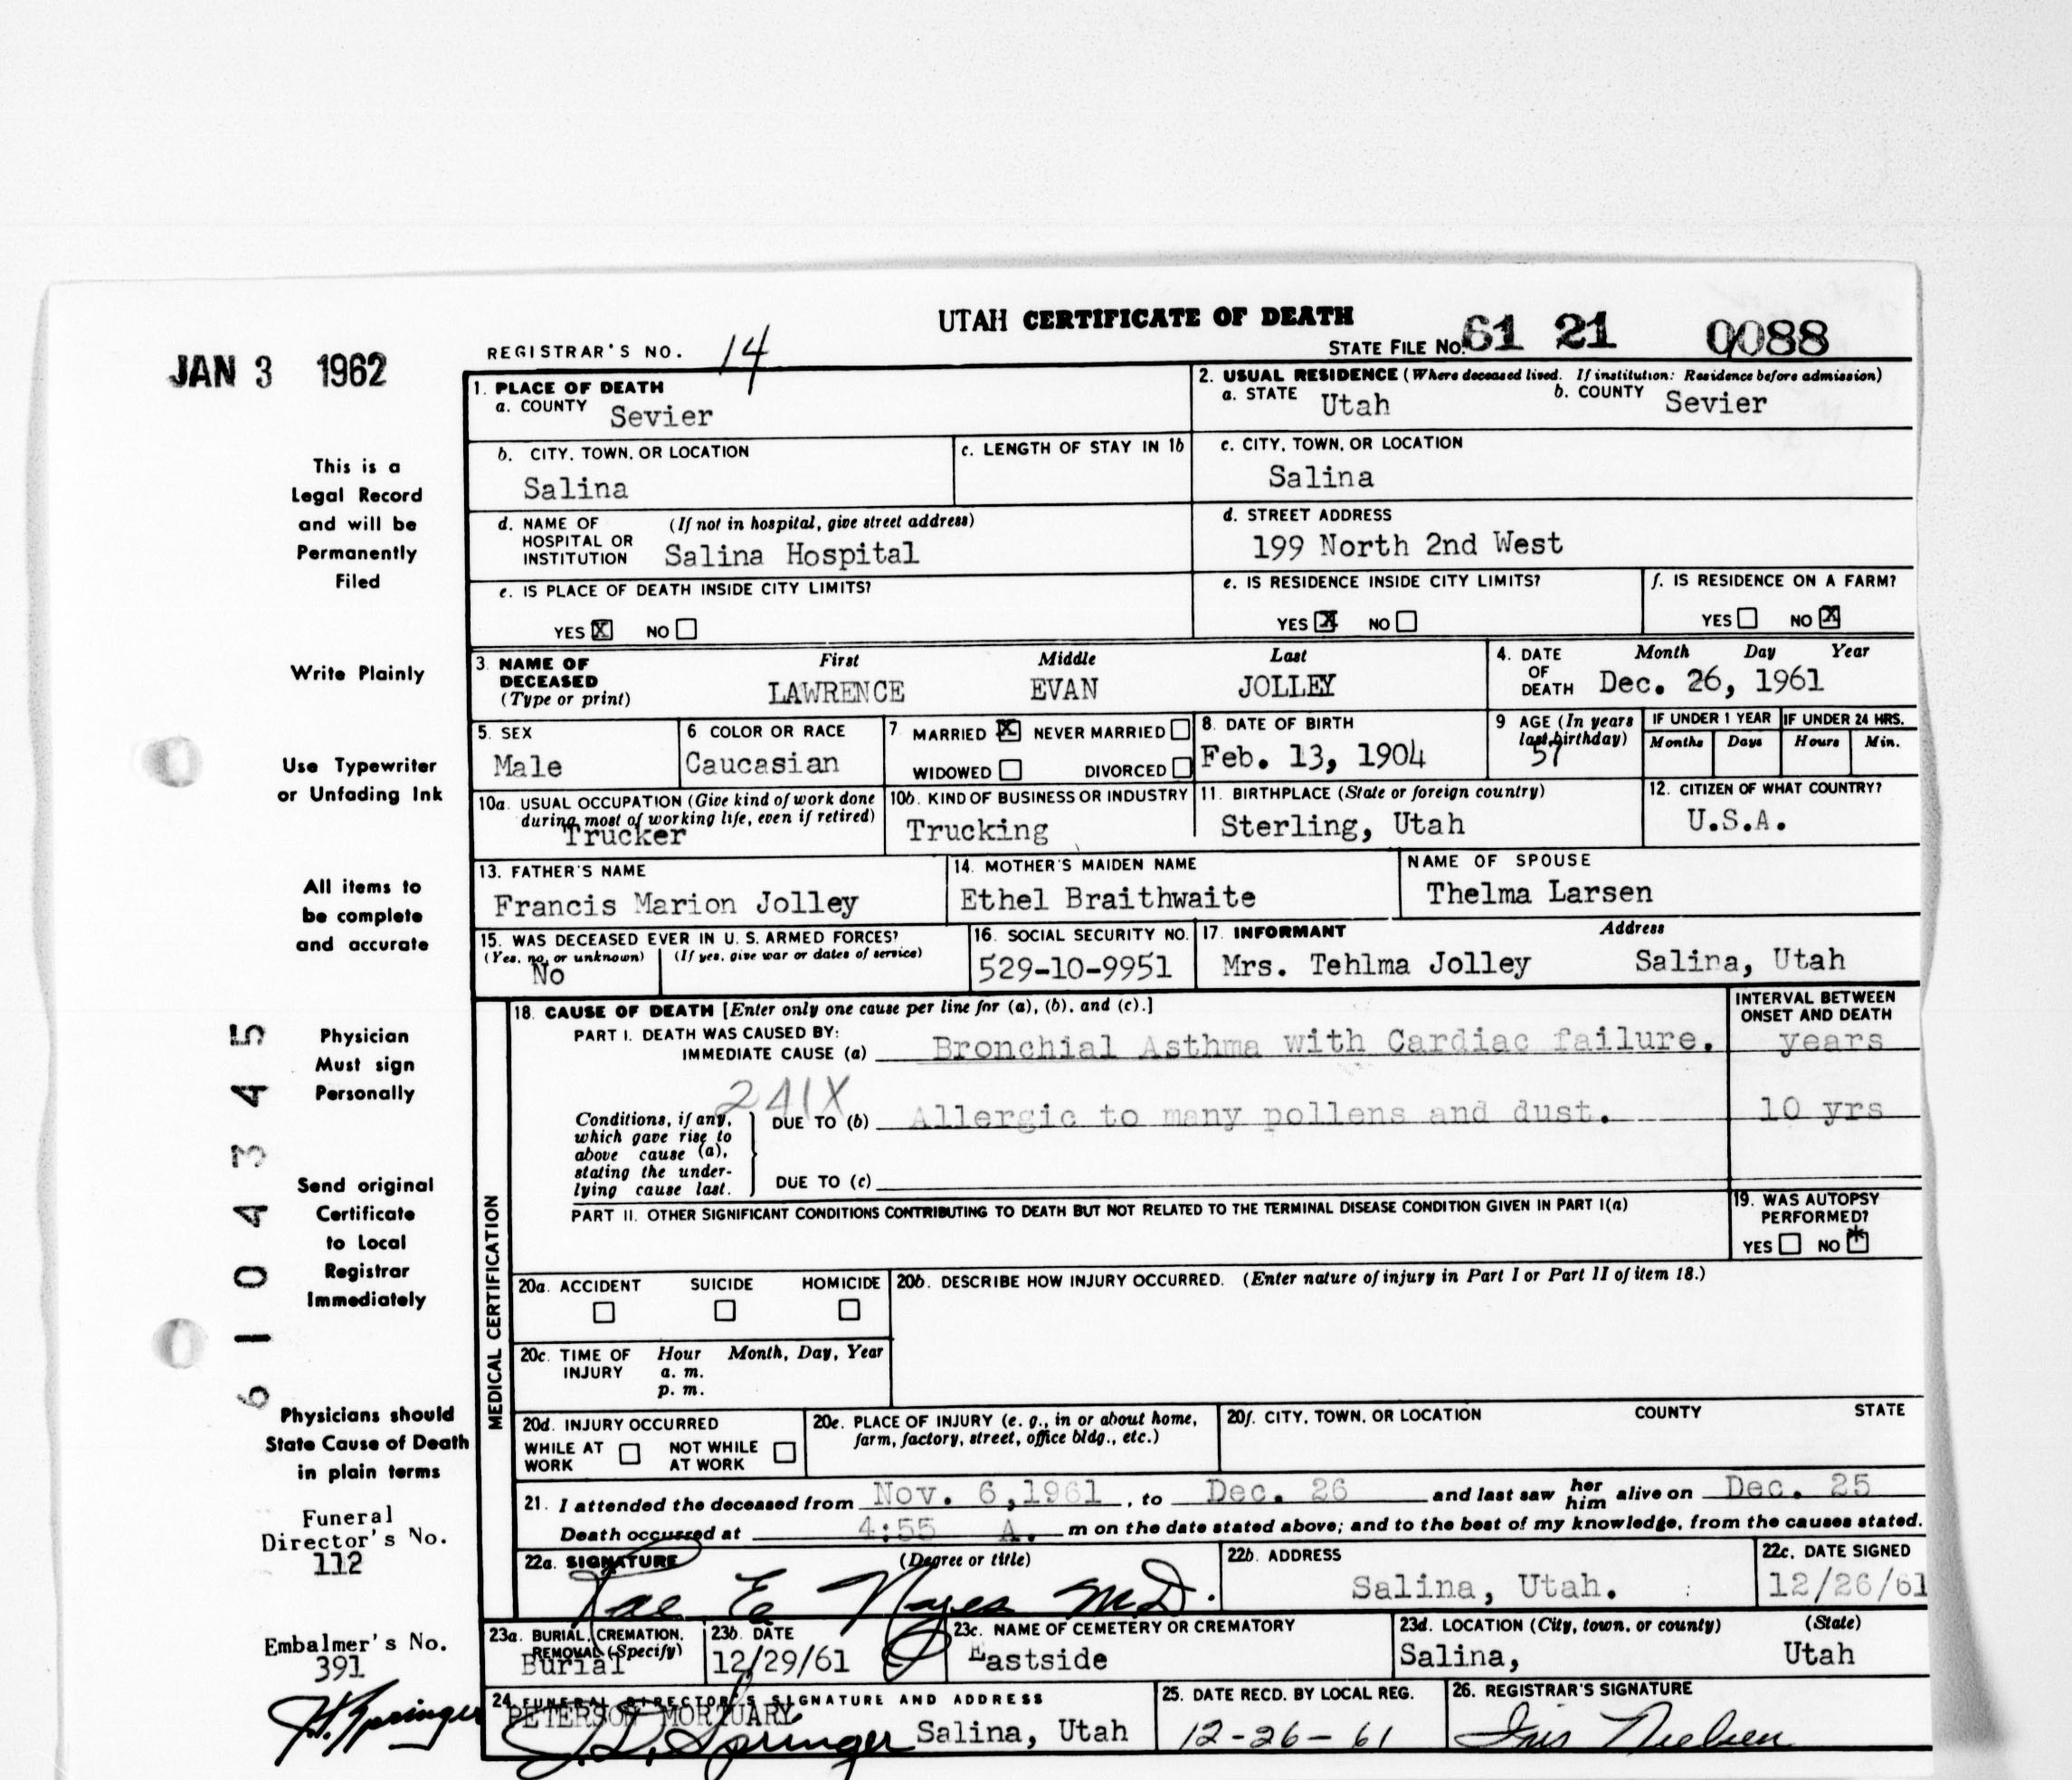 UTAH CERTIFICATE OF DEATH
JAN 3 1962
REGISTRAR'S NO. 14
STATE FILE NO. 61 21 0088
This is a
Legal Record
and will be
Permanently
Filed
Write Plainly
Use Typewriter
or Unfading Ink
All items to
be complete
and accurate
Physician
Must sign
Personally
Send original
Certificate
to Local
Registrar
Immediately
Physicians should
State Cause of Death
in plain terms
Funeral
Director's No.
112
Embalmer's No.
391
J. Springer
6104345
1. PLACE OF DEATH
a. COUNTY Sevier
2. USUAL RESIDENCE (Where deceased lived. If institution: Residence before admission)
a. STATE Utah b. COUNTY Sevier
b. CITY, TOWN, OR LOCATION
Salina
c. LENGTH OF STAY IN 1b
c. CITY, TOWN, OR LOCATION
Salina
d. NAME OF (If not in hospital, give street address)
HOSPITAL OR
INSTITUTION Salina Hospital
d. STREET ADDRESS
199 North 2nd West
e. IS PLACE OF DEATH INSIDE CITY LIMITS?
YES X NO
e. IS RESIDENCE INSIDE CITY LIMITS?
YES X NO
f. IS RESIDENCE ON A FARM?
YES NO X
3. NAME OF First Middle Last
DECEASED
(Type or print) LAWRENCE EVAN JOLLEY
4. DATE Month Day Year
OF
DEATH Dec. 26, 1961
5. SEX
Male
6 COLOR OR RACE
Caucasian
7 MARRIED X NEVER MARRIED
WIDOWED DIVORCED
8. DATE OF BIRTH
Feb. 13, 1904
9 AGE (In years
last birthday)
57
IF UNDER 1 YEAR
Months Days
IF UNDER 24 HRS.
Hours Min.
10a. USUAL OCCUPATION (Give kind of work done
during most of working life, even if retired)
Trucker
10b. KIND OF BUSINESS OR INDUSTRY
Trucking
11. BIRTHPLACE (State or foreign country)
Sterling, Utah
12. CITIZEN OF WHAT COUNTRY?
U.S.A.
13. FATHER'S NAME
Francis Marion Jolley
14. MOTHER'S MAIDEN NAME
Ethel Braithwaite
NAME OF SPOUSE
Thelma Larsen
15. WAS DECEASED EVER IN U. S. ARMED FORCES?
(Yes, no, or unknown) (If yes, give war or dates of service)
No
16. SOCIAL SECURITY NO.
529-10-9951
17. INFORMANT Address
Mrs. Tehlma Jolley Salina, Utah
MEDICAL CERTIFICATION
18. CAUSE OF DEATH [Enter only one cause per line for (a), (b), and (c).]
PART I. DEATH WAS CAUSED BY:
IMMEDIATE CAUSE (a) Bronchial Asthma with Cardiac failure.
INTERVAL BETWEEN
ONSET AND DEATH
years
241X
Conditions, if any,
which gave rise to
above cause (a),
stating the under-
lying cause last.
DUE TO (b) Allergic to many pollens and dust. 10 yrs
DUE TO (c)
PART II. OTHER SIGNIFICANT CONDITIONS CONTRIBUTING TO DEATH BUT NOT RELATED TO THE TERMINAL DISEASE CONDITION GIVEN IN PART I(a)
19. WAS AUTOPSY
PERFORMED?
YES NO *
20a. ACCIDENT SUICIDE HOMICIDE
20b. DESCRIBE HOW INJURY OCCURRED. (Enter nature of injury in Part I or Part II of item 18.)
20c. TIME OF Hour Month, Day, Year
INJURY a. m.
p. m.
20d. INJURY OCCURRED
WHILE AT NOT WHILE
WORK AT WORK
20e. PLACE OF INJURY (e. g., in or about home,
farm, factory, street, office bldg., etc.)
20f. CITY, TOWN, OR LOCATION COUNTY STATE
21. I attended the deceased from Nov. 6,1961, to Dec. 26 and last saw her him alive on Dec. 25
Death occurred at 4:55 A. m on the date stated above; and to the best of my knowledge, from the causes stated.
22a. SIGNATURE (Degree or title)
Rae E Noyes M.D.
22b. ADDRESS
Salina, Utah.
22c. DATE SIGNED
12/26/61
23a. BURIAL, CREMATION,
REMOVAL (Specify)
Burial
23b. DATE
12/29/61
23c. NAME OF CEMETERY OR CREMATORY
Eastside
23d. LOCATION (City, town, or county) (State)
Salina, Utah
24. FUNERAL DIRECTOR'S SIGNATURE AND ADDRESS
PETERSON MORTUARY
J. D. Springer Salina, Utah
25. DATE RECD. BY LOCAL REG.
12-26-61
26. REGISTRAR'S SIGNATURE
Iris Nielsen